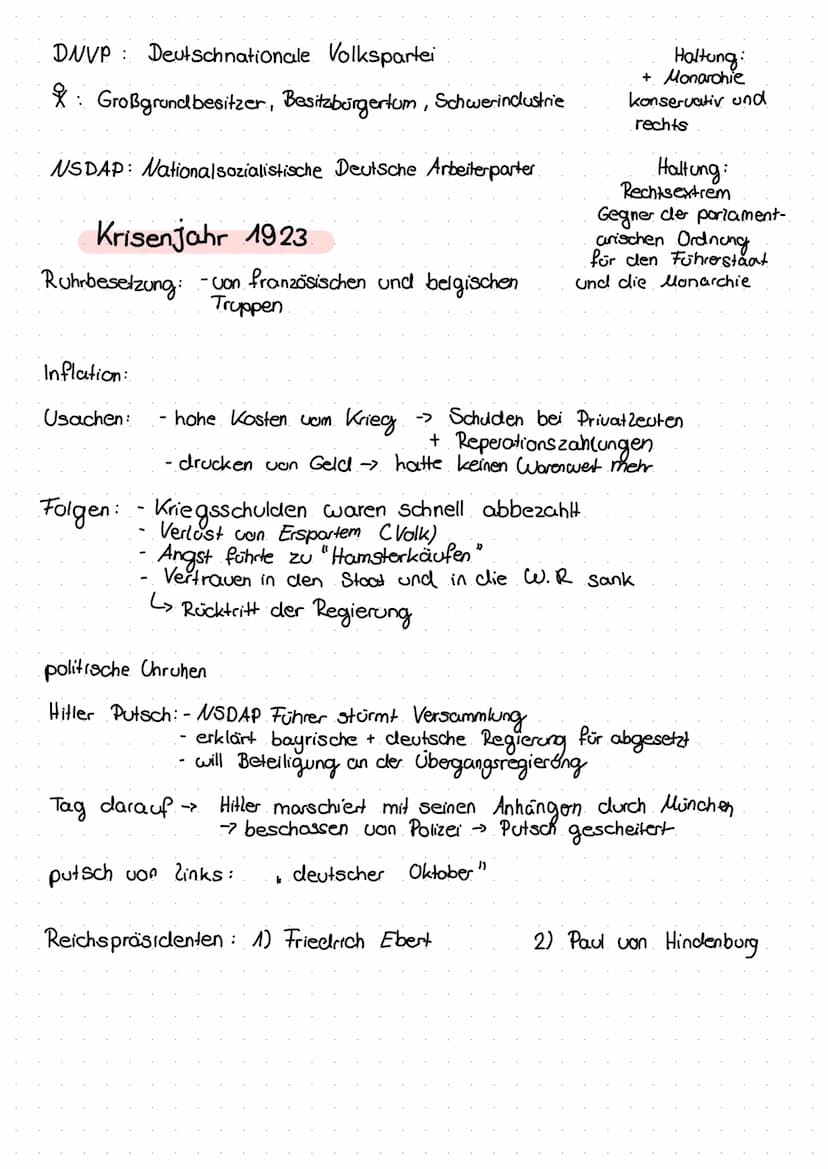 DNVP : Deutschnationale Volkspartei
Haltung:
+ Monarchie
: Großgrundbesitzer, Besitzbürgertum, Schwerindustrie
konservativ und
rechts
NSDAP: Nationalsozialistische Deutsche Arbeiterparter
Haltung:
Rechtsextrem
Gegner der parlament-
arischen Ordnung
für den Führerstaat
und die Monarchie
Krisenjahr 1923
Ruhrbesetzung: - von französischen und belgischen
Truppen
Inflation:
Usachen: - hohe Kosten vom Krieg -> Schulden bei Privatleuten
+ Reperationszahlungen
- drucken von Geld -> hatte keinen Warenwert mehr
Folgen: - Kriegsschulden waren schnell abbezahlt
- Verlust von Erspartem (Volk)
- Angst führte zu "Hamsterkäufen"
- Vertrauen in den Staat und in die W.R sank
↳ Rücktritt der Regierung
politische Unruhen
Hitler Putsch: - NSDAP Führer stürmt Versammlung
- erklärt bayrische + deutsche Regierung für abgesetzt
- will Beteiligung an der Übergangsregierung
Tag darauf -> Hitler marschiert mit seinen Anhängen durch München
-> beschossen von Polizei -> Putsch gescheitert
putsch von links: „ deutscher Oktober"
Reichspräsidenten: 1) Friedrich Ebert 2) Paul von Hindenburg